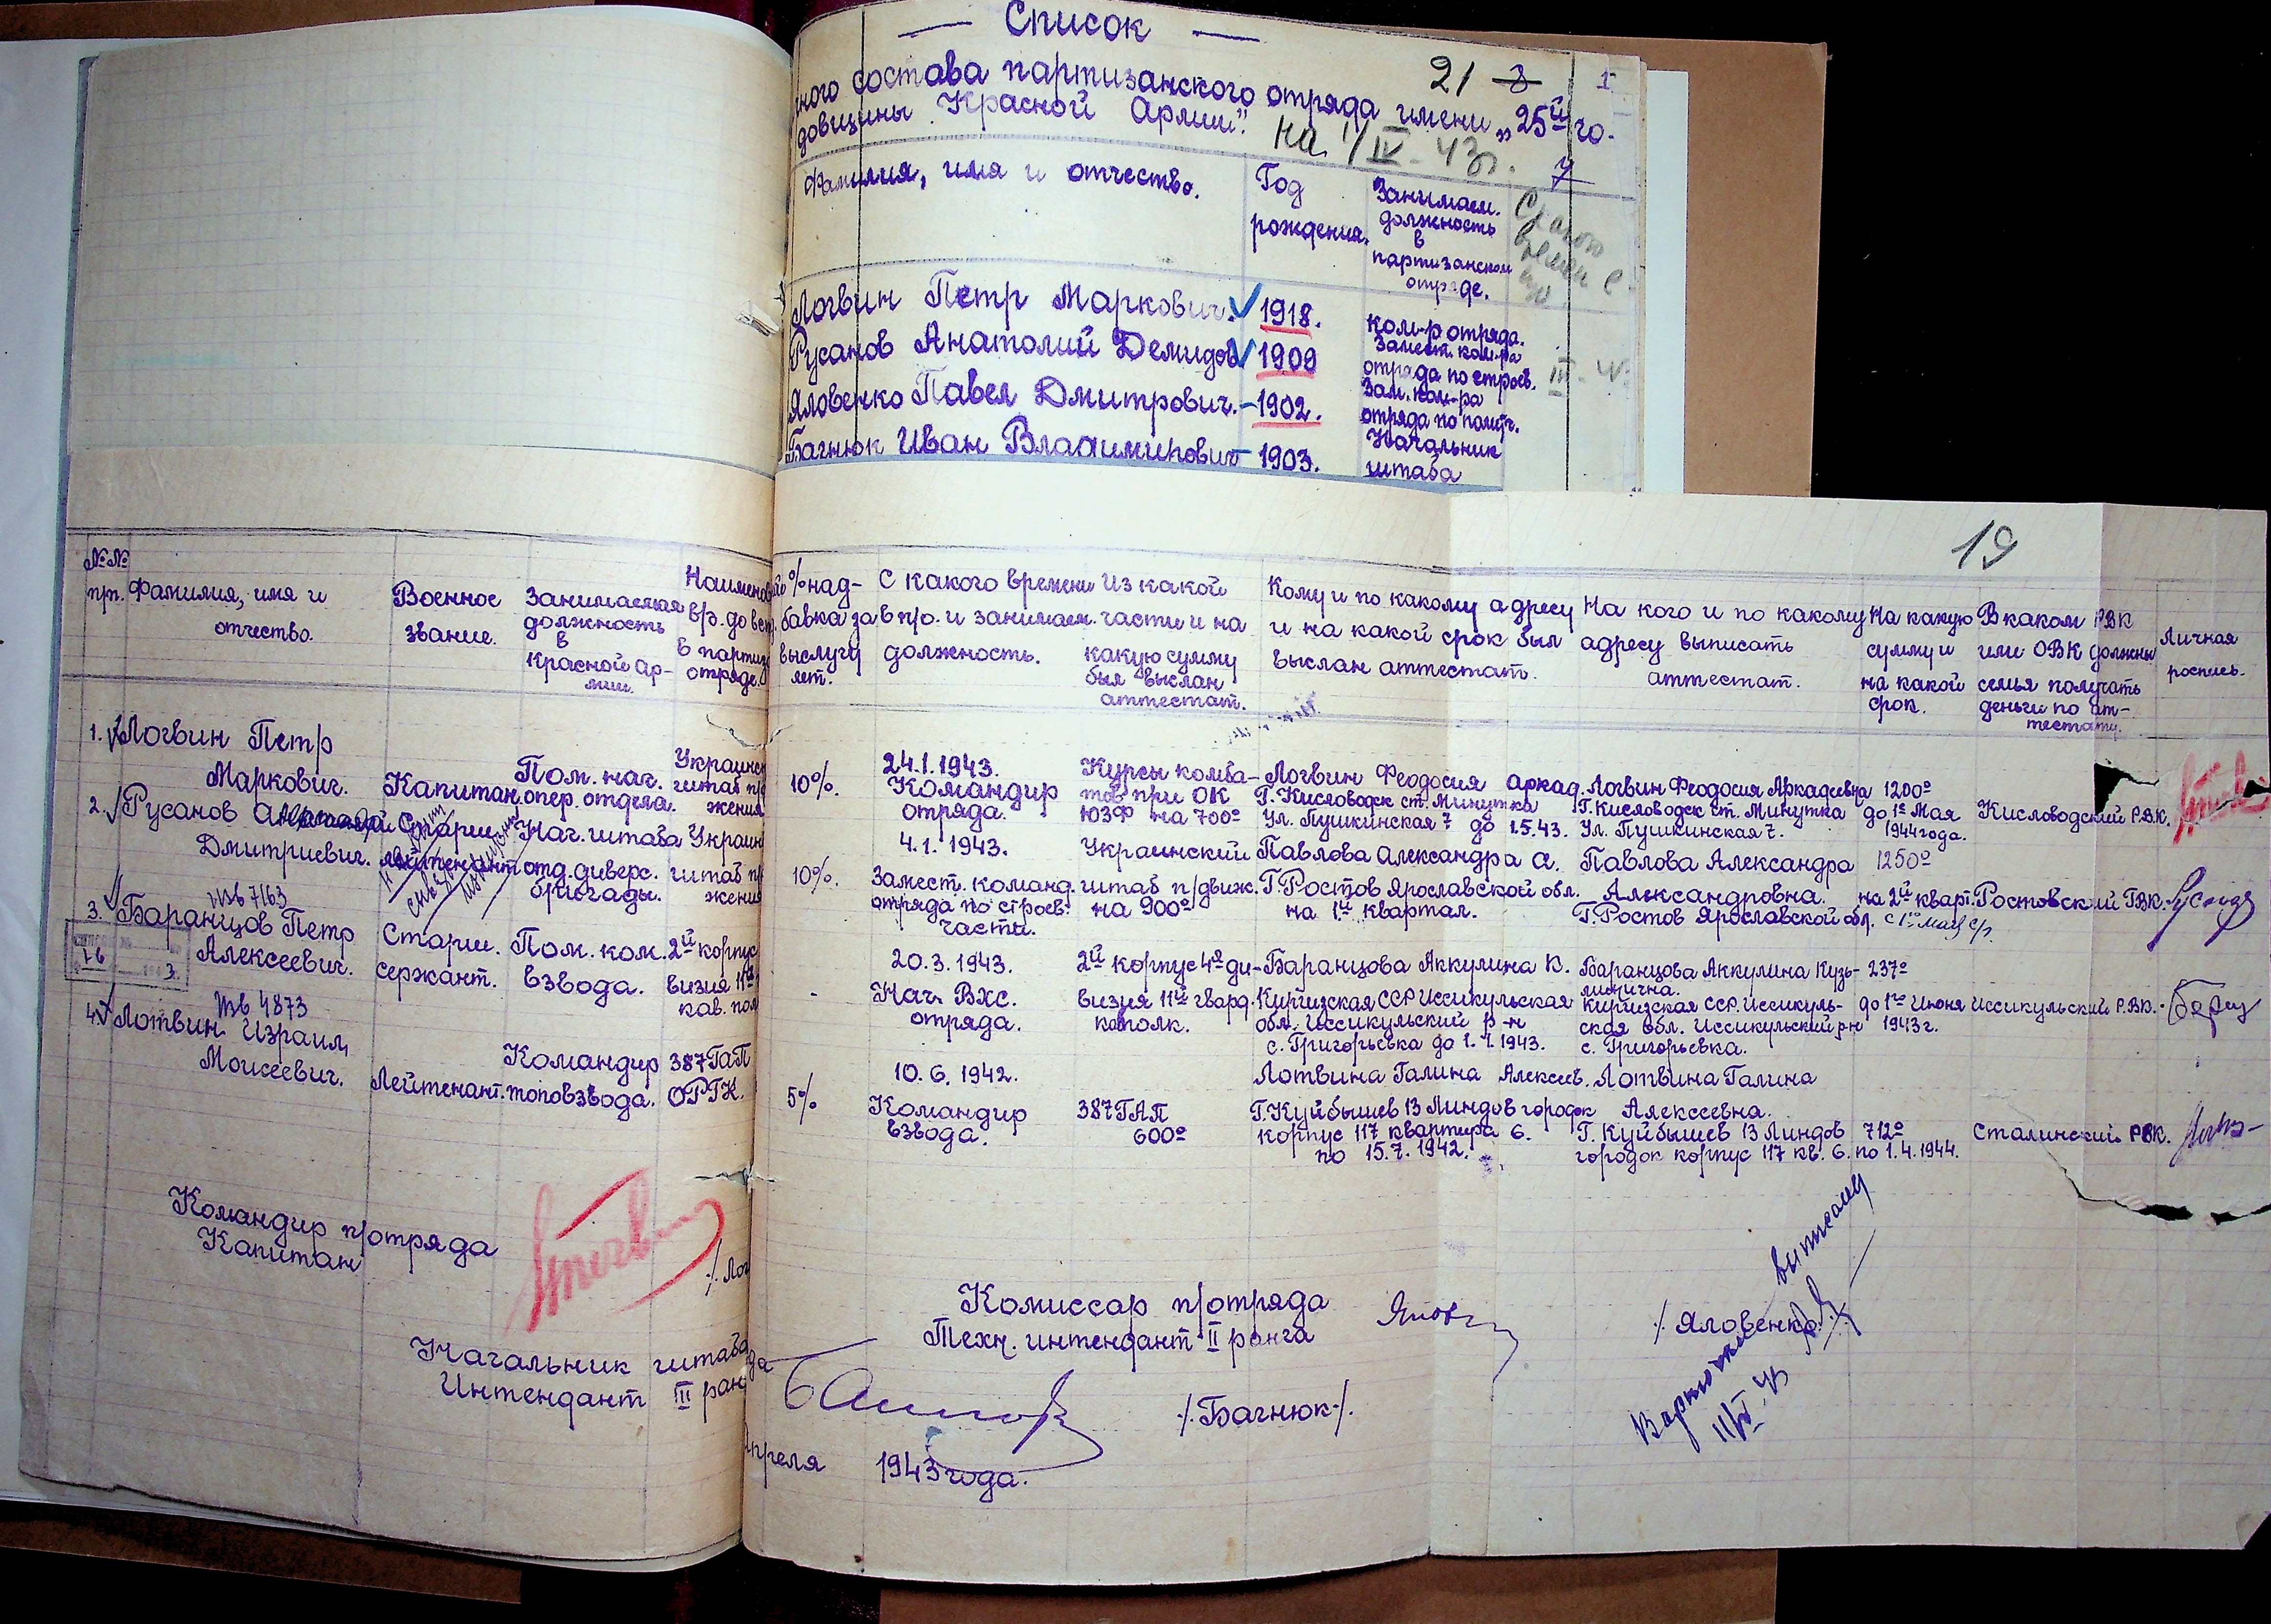 — Список —
21 3 1
ного состава партизанского отряда имени „25й го-
довщины Красной Армии".
на 1/IV-43г.
Фамилия, имя и отчество.
Год
рождения.
Занимаем.
должность
в
партизанском
отряде.
Логвин Петр Маркович. 1918. ком-р отряда.
Русанов Анатолий Демидов 1909 Замест. ком-ра
отряда по строев.
Яловенко Павел Дмитрович. - 1902. Зам. ком-ра
отряда по полит.
Багнюк Иван Владимирович - 1903. Начальник
штаба
19
№№
п/п.
Фамилия, имя и
отчество.
Военное
звание.
Занимаемая
должность
в
Красной Ар-
мии.
Наименов
в/ч. до вст
в партиз
отряде.
% над-
бавка за
выслугу
лет.
С какого времени
в п/о. и занимаем.
должность.
Из какой
части и на
какую сумму
был выслан
аттестат.
Кому и по какому адресу
и на какой срок был
выслан аттестат.
На кого и по какому
адресу выписать
аттестат.
На какую
сумму и
на какой
срок.
В каком РВК
или ОВК должны
семья получать
деньги по ат-
тестату.
Личная
роспись.
1. Логвин Петр
Маркович.
Капитан.
Пом. нач.
опер. отдела.
Украинск
штаб п/д
жения
10%.
24.1.1943.
Командир
отряда.
Курсы комба-
тов при ОК
ЮЗФ на 700º
Логвин Феодосия Аркад.
Г. Кисловодск ст. Минутка
Ул. Пушкинская 7 до 1.5.43.
Логвин Феодосия Аркадиевна
Г. Кисловодск ст. Минутка
Ул. Пушкинская 7.
1200º
до 1º Мая
1944 года.
Кисловодский Р.В.К.
2. Русанов
Дмитриевич.
Старш.
лейтенант
Нач. штаба
отд. диверс.
бригады.
Украин
штаб п/
жения
10%.
4.1.1943.
Замест. команд.
отряда по строев.
части.
Украинский
штаб п/движ.
на 900º
Павлова Александра А.
Г. Ростов Ярославской обл.
на 1й квартал.
Павлова Александра
Александровна.
Г. Ростов Ярославской обл.
1250º
на 2й кварт.
с 1го мая с/г.
Ростовский ГВК.
7163
3. Баранцов Петр
Алексеевич.
Старш.
сержант.
Пом. ком.
взвода.
2й корпус
визия 11й
кав. пол
-
20.3.1943.
Нач. Вхс.
отряда.
2й корпус 4º ди-
визия 11й гвард.
кв полк.
Баранцова Аккулина К.
Киргизская ССР Иссикульская
обл. Иссикульский р-н
с. Григорьевка до 1.1.1943.
Баранцова Аккулина Кузь-
минична.
Киргизская ССР. Иссикуль-
ская обл. Иссикульский р-н
с. Григорьевка.
237º
до 1го Июня
1943 г.
Иссикульский Р.В.К.
4873
4. Лотвин Израил
Моисеевич.
Лейтенант.
Командир
топовзвода.
387 ГАП
ОРГК.
5%
10.6.1942.
Командир
взвода.
387 ГАП
600º
Лотвина Галина Алексеев.
Г. Куйбышев 13 Линдов городок
корпус 117 квартира 6.
по 15.7.1942.
Лотвина Галина
Алексеевна.
Г. Куйбышев 13 Линдов
городок корпус 117 кв. 6.
712º
по 1.4.1944.
Сталинский РВК.
Командир п/отряда
Капитан
/. Лог
Комиссар п/отряда
Техн. интендант II ранга
/. Яловенко./.
Начальник штаба
Интендант III ран
/. Багнюк./.
апреля 1943 года.